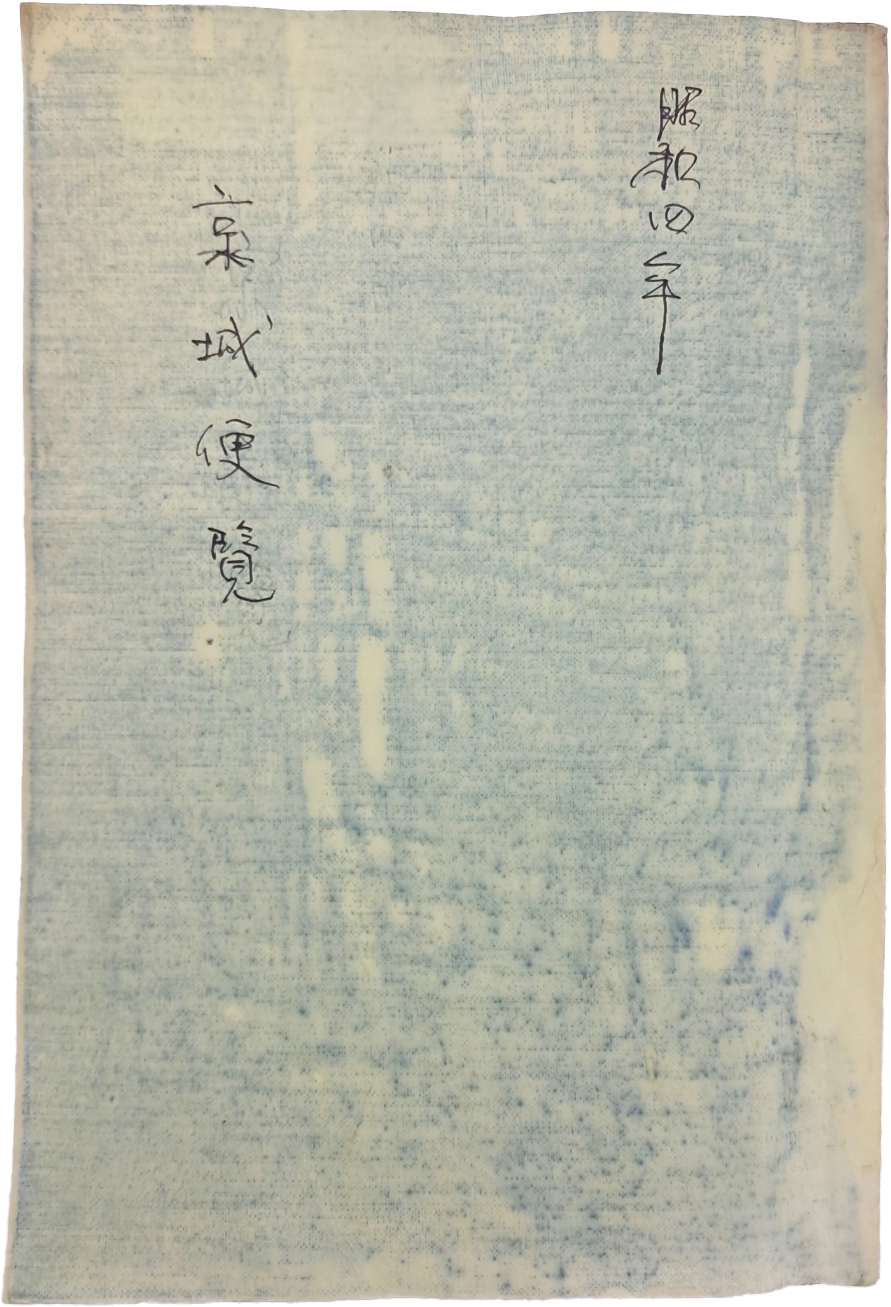 昭和四年
京城便覽